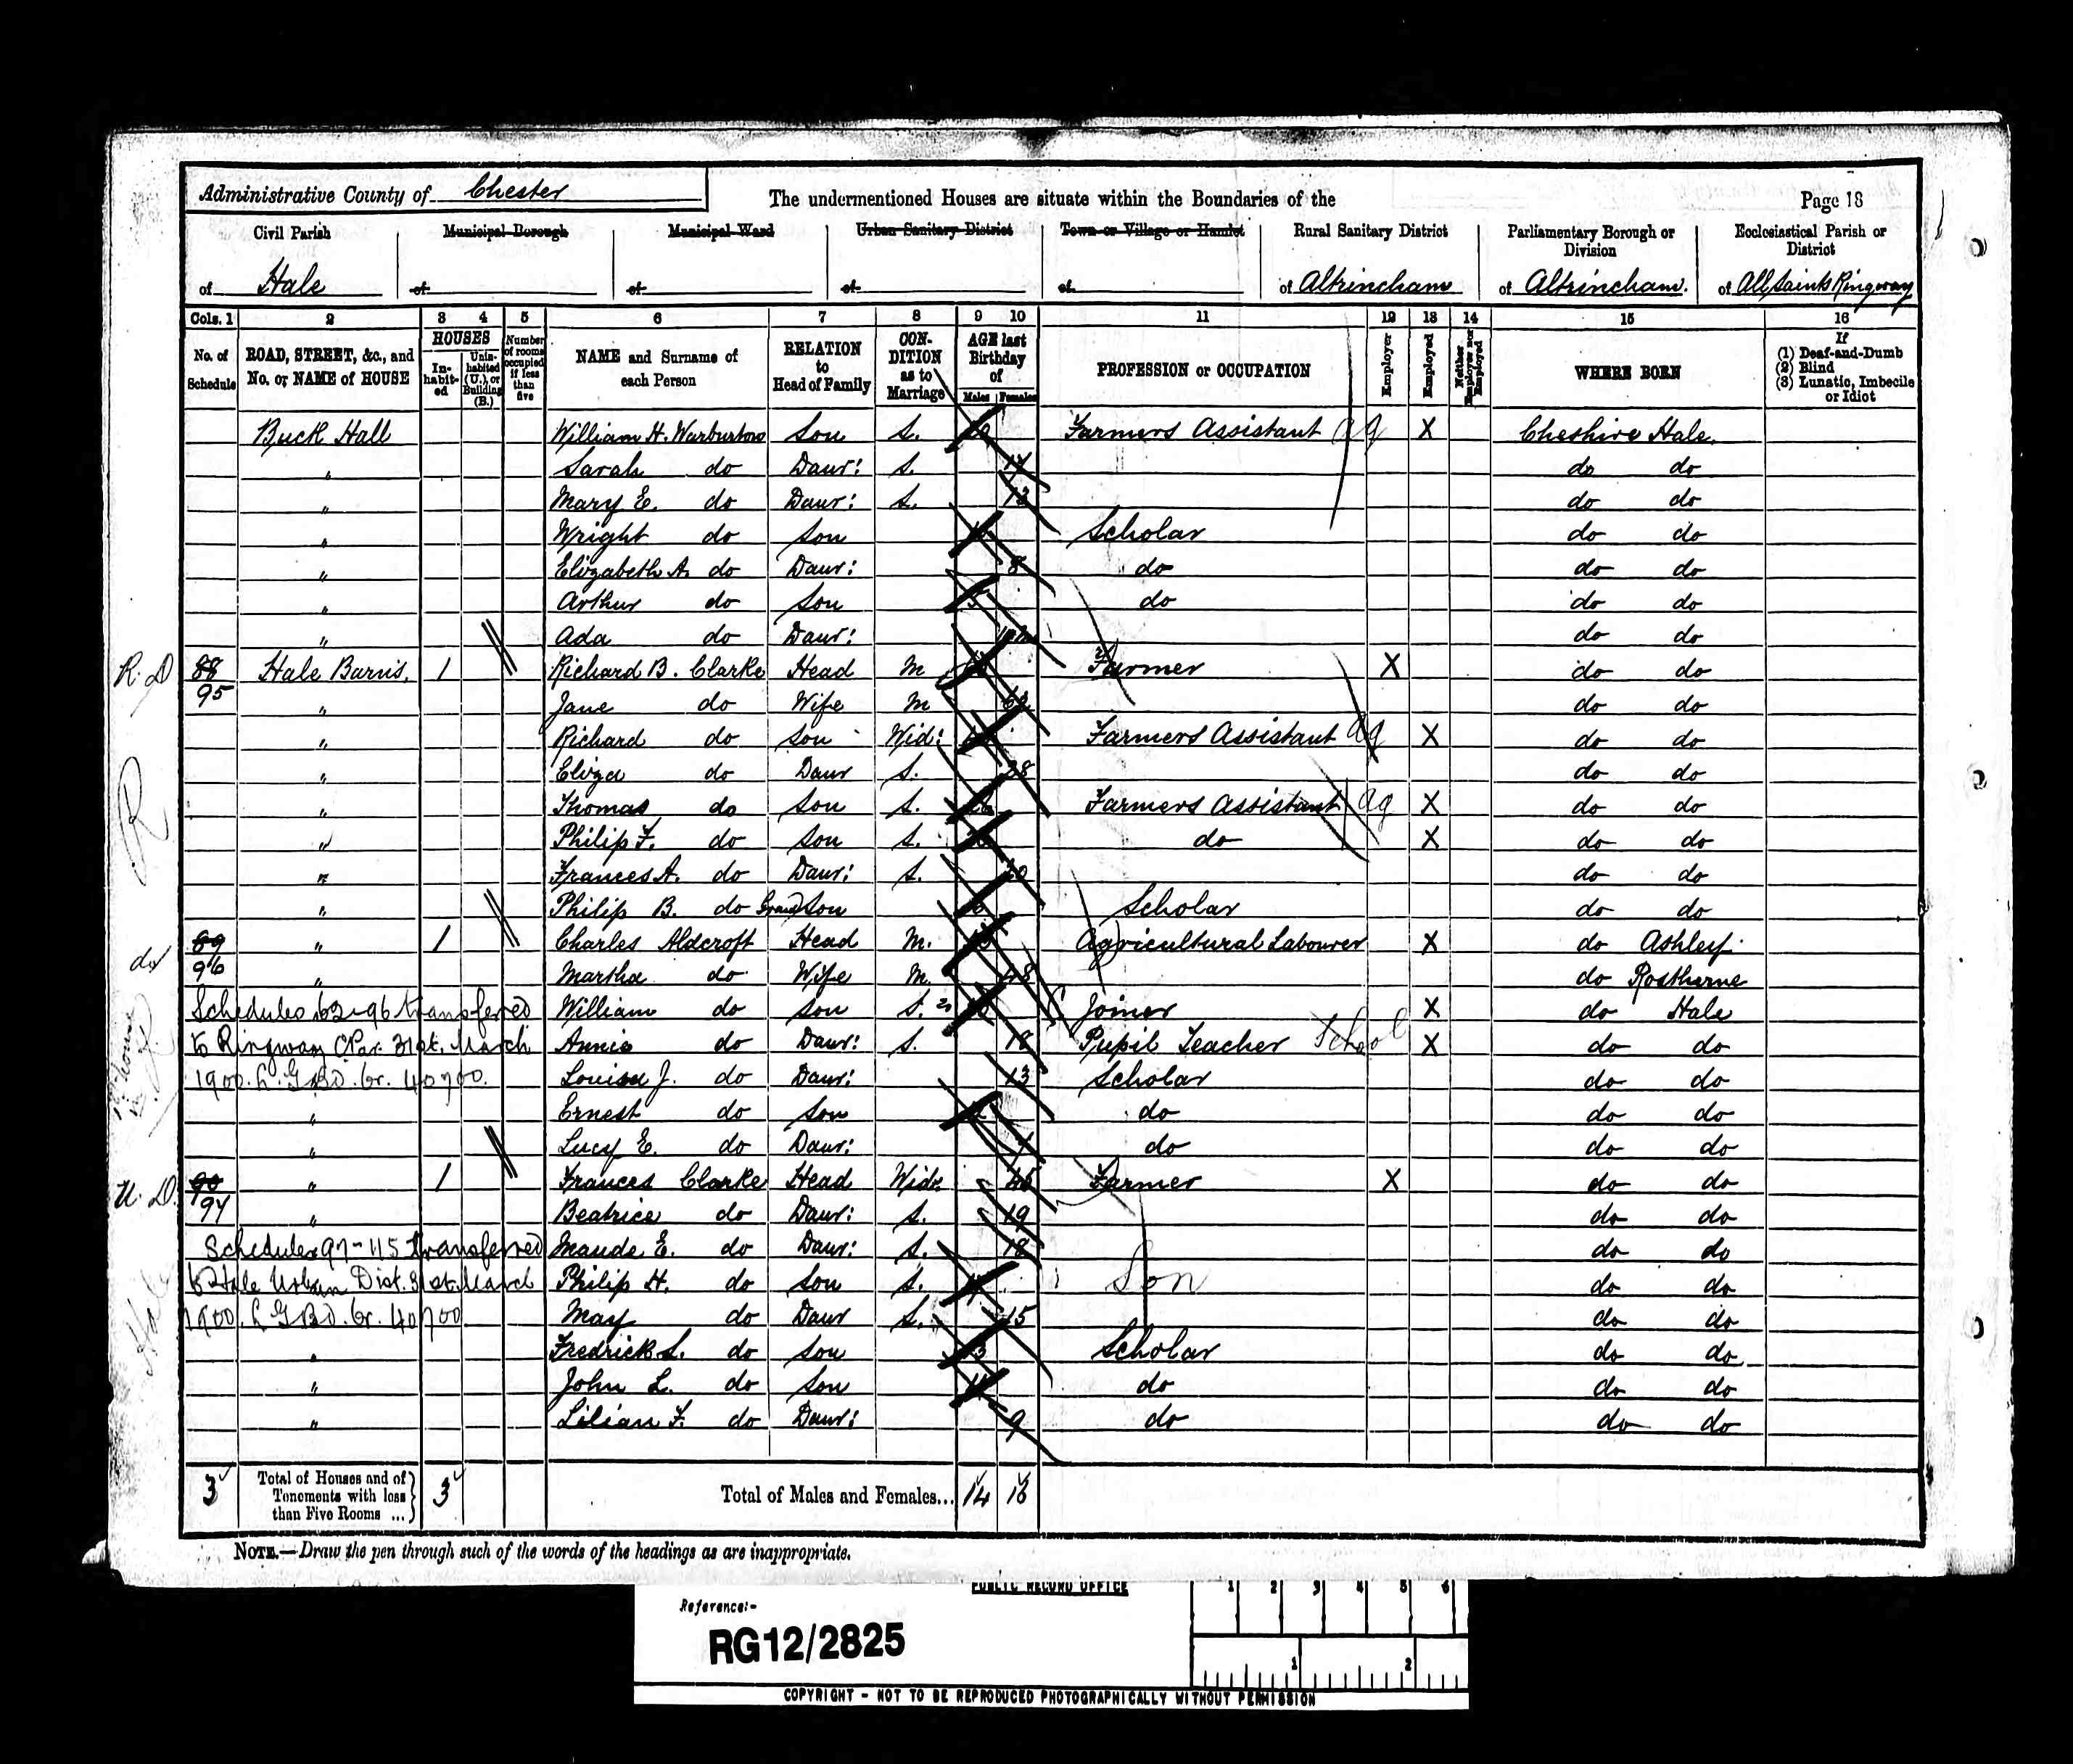 Administrative County of Chester
The undermentioned Houses are situate within the Boundaries of the
Page 18
Civil Parish of Hale
Municipal Borough of
Municipal Ward of
Urban Sanitary District of
Town or Village or Hamlet of
Rural Sanitary District of Altrincham
Parliamentary Borough or Division of Altrincham.
Ecclesiastical Parish or District of All Saints Ringway
Cols. 1 2 3 4 5 6 7 8 9 10 11 12 13 14 15 16
No. of Schedule
ROAD, STREET, &c., and No. or NAME of HOUSE
HOUSES
In-habit-ed
Unin-habited (U.), or Building (B.)
Number of rooms occupied if less than five
NAME and Surname of each Person
RELATION to Head of Family
CON-DITION as to Marriage
AGE last Birthday of
Males Females
PROFESSION or OCCUPATION
Employer
Employed
Neither Employer nor Employed
WHERE BORN
If
(1) Deaf-and-Dumb
(2) Blind
(3) Lunatic, Imbecile or Idiot
Buck Hall William H. Warburton Son S. Farmers Assistant Ag X Cheshire Hale.
" Sarah do Daur: S. do do
" Mary E. do Daur: S. 13 do do
" Wright do Son Scholar do do
" Elizabeth A. do Daur: 8 do do do
" Arthur do Son do do do
" Ada do Daur: do do
R. D 88 Hale Barns, 1 Richard B. Clarke Head M Farmer X do do
95 " Jane do Wife M do do
" Richard do Son Wid: Farmers Assistant Ag X do do
" Eliza do Daur S. 28 do do
" Thomas do Son S. Farmers Assistant Ag X do do
" Philip F. do Son S. do X do do
" Frances A. do Daur: S. 20 do do
" Philip B. do Grand Son Scholar do do
do 89 " 1 Charles Aldcroft Head M. Agricultural Labourer X do Ashley
96 " Martha do Wife M. 48 do Rostherne
Schedules 62-96 transferred William do Son S. Joiner X do Hale
to Ringway C Par. 31st. March Annie do Daur: S. 18 Pupil Teacher School X do do
1900. L. G. B. O. Gr. 40700. Louisa J. do Daur: 13 Scholar do do
" Ernest do Son do do do
" Lucy E. do Daur: do do do
U. D. 90 " 1 Frances Clarke Head Wid: 45 Farmer X do do
97 " Beatrice do Daur: S. 19 do do
Schedules 97-115 transferred Maude E. do Daur: S. 18 do do
to Hale Urban Dist. 31st. March Philip H. do Son S. Son do do
1900. L G B O. Gr. 40700 May do Daur S. 15 do do
" Fredrick S. do Son 13 Scholar do do
" John L. do Son do do do
" Lilian F. do Daur: 9 do do do
3 Total of Houses and of Tenements with less than Five Rooms ... 3 Total of Males and Females... 14 16
NOTE.—Draw the pen through such of the words of the headings as are inappropriate.
PUBLIC RECORD OFFICE
1 2 3 4 5 6
Reference:-
RG12/2825
1 2
COPYRIGHT - NOT TO BE REPRODUCED PHOTOGRAPHICALLY WITHOUT PERMISSION